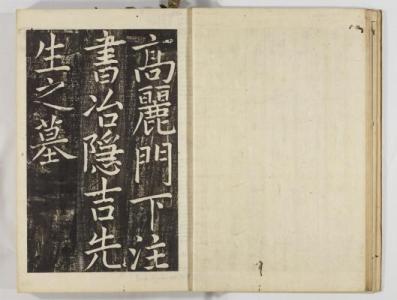 高麗門下注
書冶隱吉先
生之墓